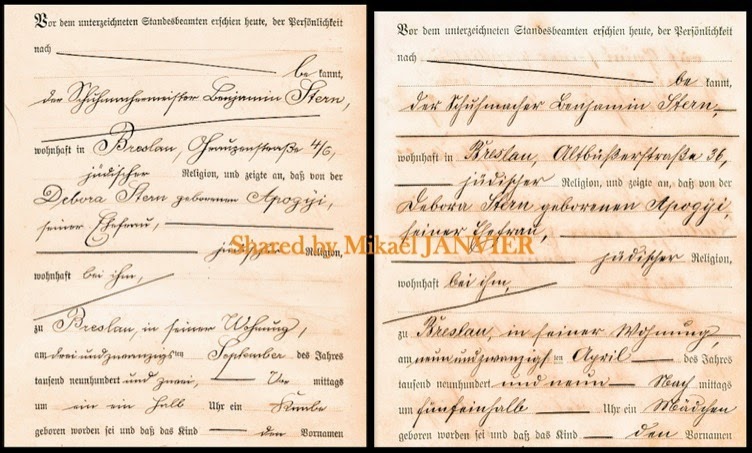 Vor dem unterzeichneten Standesbeamten erschien heute, der Persönlichkeit
nach
be kannt,
der Schuhmachermeister Benjamin Stern,
wohnhaft in Breslau, 4/6,
jüdischer Religion, und zeigte an, daß von der
Debora Stern geborenen Apogyi,
seiner Ehefrau,
jüdischer Religion,
wohnhaft bei ihm,
zu Breslau, in seiner Wohnung,
am drei und zwanzigs ten September des Jahres
tausend neunhundert und zwei, Vor mittags
um ein ein halb Uhr ein Knabe
geboren worden sei und daß das Kind den Vornamen
Vor dem unterzeichneten Standesbeamten erschien heute, der Persönlichkeit
nach
be kannt,
der Schuhmacher Benjamin Stern,
wohnhaft in Breslau, Altbüßerstraße 36,
jüdischer Religion, und zeigte an, daß von der
Debora Stern geborenen Apogyi,
seiner Ehefrau,
jüdischer Religion,
wohnhaft bei ihm,
zu Breslau, in seiner Wohnung,
am neun und zwanzigs ten April des Jahres
tausend neunhundert und neun Nach mittags
um fünfeinhalb Uhr ein Mädchen
geboren worden sei und daß das Kind den Vornamen
Shared by Mikael JANVIER